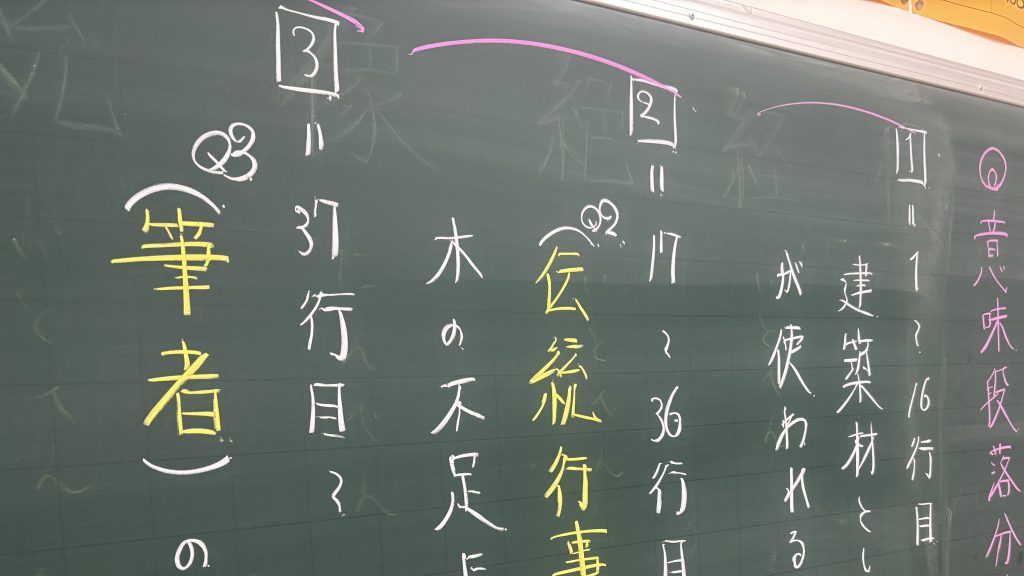 ◎意味段落分
1=1~16行目
建築材とし
が使われる
2=17~36行目
Q2
(伝統行事
木の不足に
3=37行目~
Q3
(筆者)の